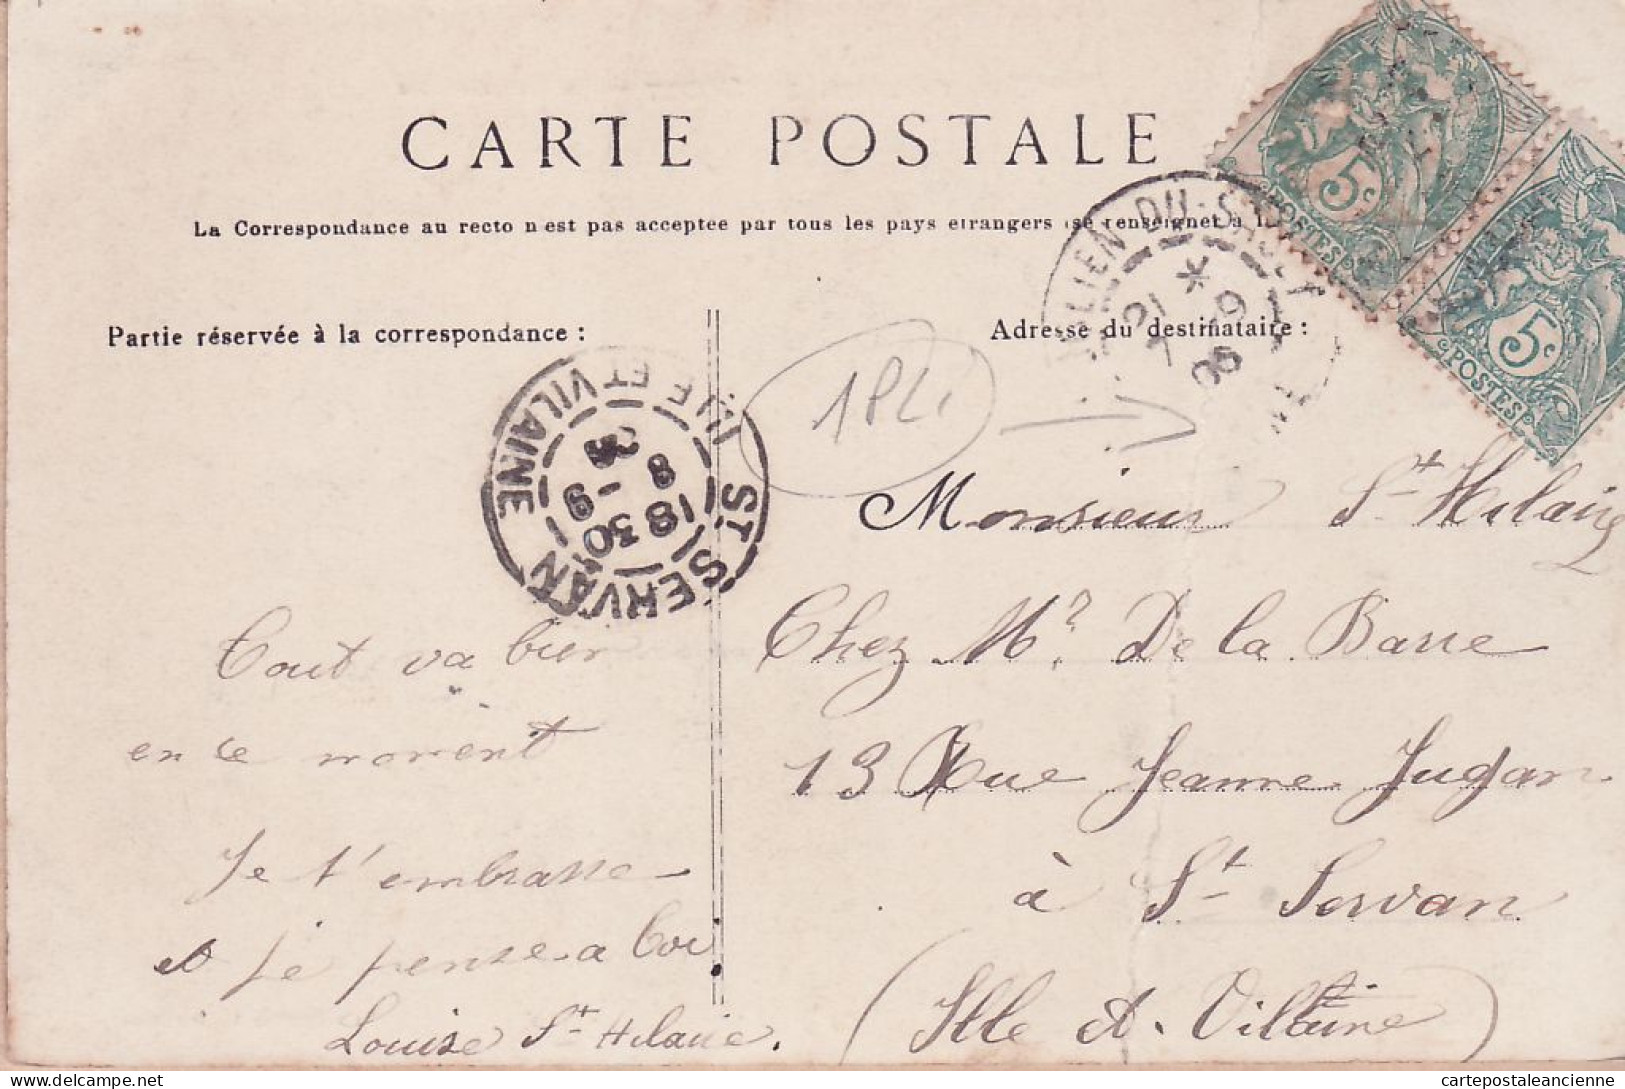 CARTE POSTALE
La Correspondance au recto n'est pas acceptée par tous les pays étrangers (se renseignet à l
Partie réservée à la correspondance :
Adresse du destinataire :
5c
POSTES
5c
POSTES
LIEN-DU-S
21 *
7 -9
06
ILLE ET VILAINE
8 -9
18 30
ST SERVAN
1 PLi
Monsieur St Hilaire
Chez Mr De la Barre
13 Rue Jeanne Jugan
à St Servan
(Ille et Villaine)
Tout va bien
en ce moment
Je t'embrasse
et je pense a toi
Louise St Hilaire.
cartepostaleancienne
delcampe.net